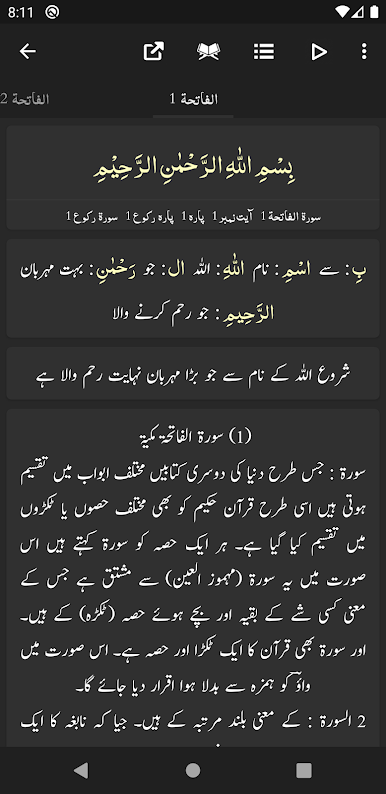 8:11
الفاتحة 1
الفاتحة 2
بِسْمِ اللّٰهِ الرَّحْمٰنِ الرَّحِیْمِ
سورة الفاتحة 1 آیت نمبر 1 پارہ 1 پارہ رکوع 1 سورة رکوع 1
بِ : سے اسْمِ : نام اللّٰهِ : اللہ ال : جو رَحْمٰنِ : بہت مہربان
الرَّحِیمِ : جو رحم کرنے والا
شروع اللہ کے نام سے جو بڑا مہربان نہایت رحم والا ہے
(1) سورة الفاتحۃ مکیۃ
سورة : جس طرح دنیا کی دوسری کتابیں مختلف ابواب میں تقسیم
ہوتی ہیں اسی طرح قرآن حکیم کو بھی مختلف حصوں یا ٹکڑوں
میں تقسیم کیا گیا ہے۔ ہر ایک حصہ کو سورة کہتے ہیں اس
صورت میں یہ سورة (مہموز العین) سے مشتق ہے جس کے
معنی کسی شے کے بقیہ اور بچے ہوئے حصہ (ٹکڑہ) کے ہیں۔
اور سورة بھی قرآن کا ایک ٹکڑا اور حصہ ہے۔ اس صورت میں
واؤ کو ہمزہ سے بدلا ہوا اقرار دیا جائے گا۔
2 السورة : کے معنی بلند مرتبہ کے ہیں۔ جیا کہ نابغہ کا ایک